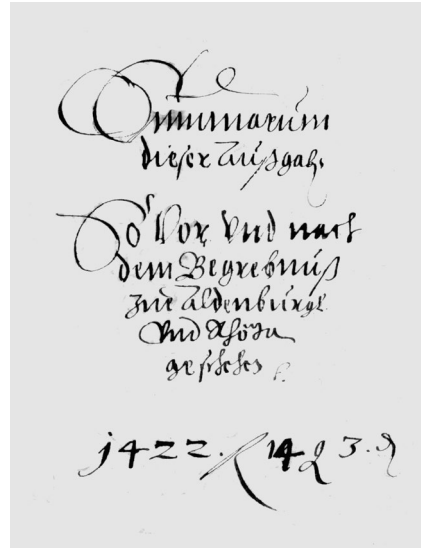 Summarum
dieser Außgab.
So Vor Vnd nach
dem Begrebnüß
zue Aldenburgk
Vnd Rhöda
geschehen
1422. R 1423. D